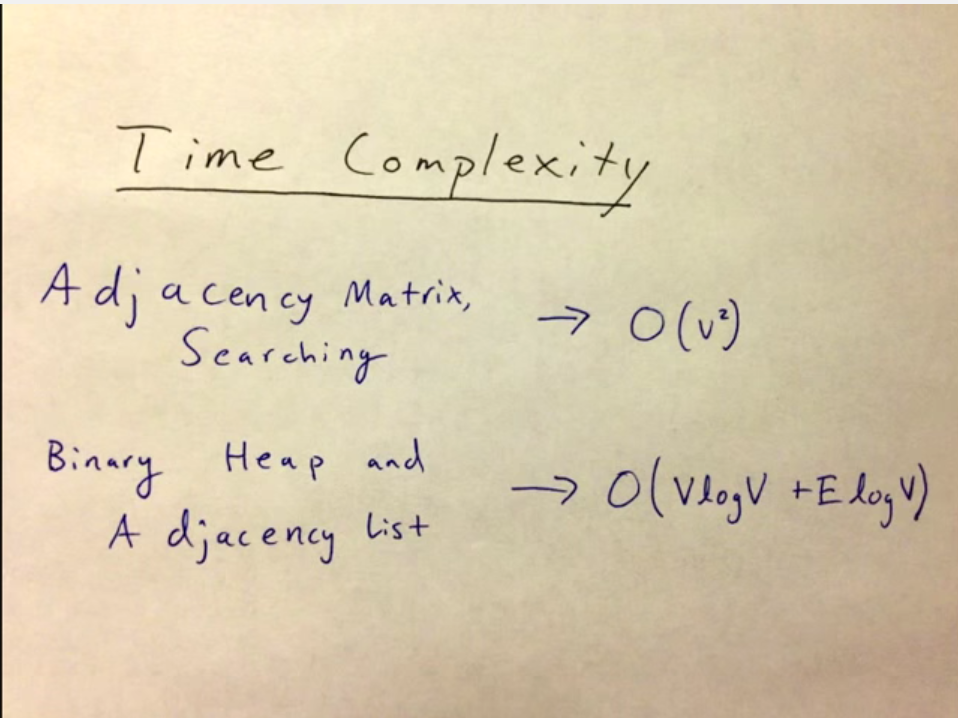 Time Complexity
Adjacency Matrix,
Searching → O(V²)
Binary Heap and
Adjacency List → O(VlogV + ElogV)